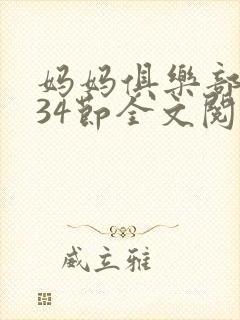 妈妈俱樂部
34節全文閱
威立雅